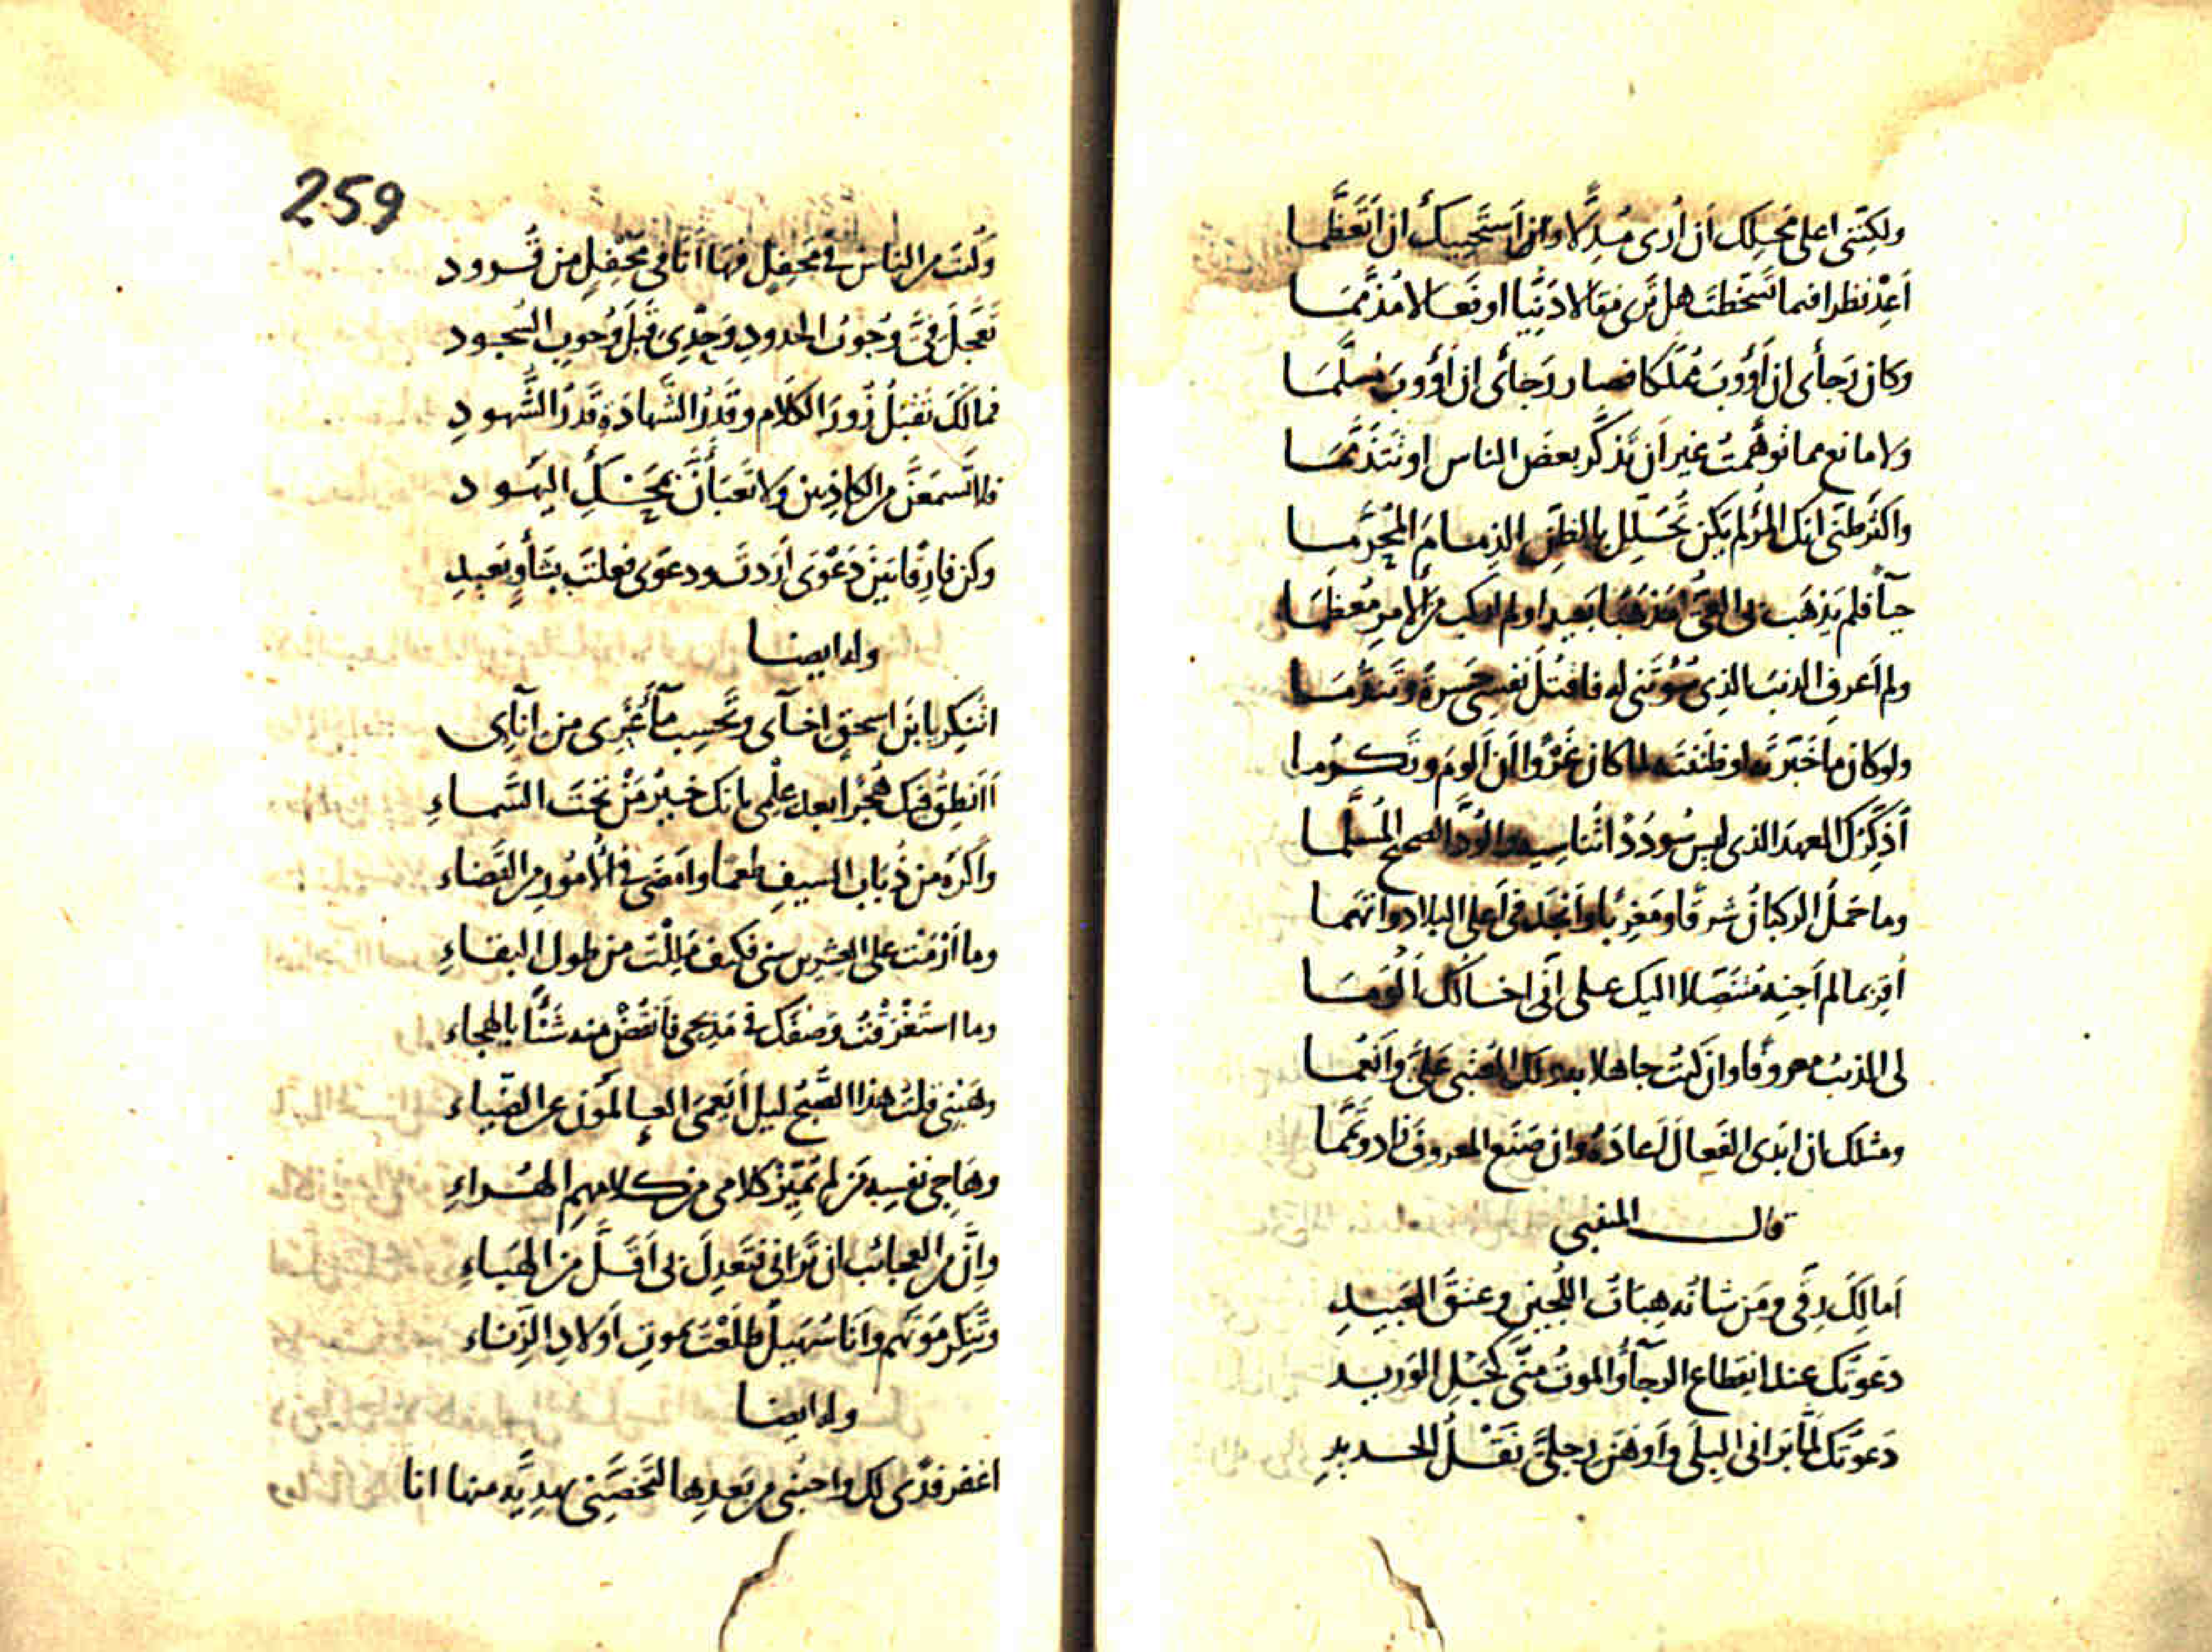 ولكنني اعلي محلك ان ارى مُدِلًّا وان استحييك ان اتعظما
اَعِدْ نظرا فيما تسخطتَ هل ترى مقالا دَنِيًّا او فَعالا مُذمَّمَا
وكان رَجاٰى ان أَؤُوبَ مُمَلّكا فصار رَجائى ان أَؤُوبَ مُسَلَّمَا
ولا مانع مما توهَّمتُ غير اَن تَذكَّر بعضَ الناس او تَتَذَمَّمَا
واكثر ظنى انك المرُ لم يكن تُحَلِّلُ بالظنِّ الذِمامَ المُحَرَّما
حياً فلم يذهب بى الغىُّ مَذهَبًا بَعيدا ولم اركب من الامرِ مُعظَمَا
ولم اَعرِفِ الذنبَ الذى سُؤْتَنى له فاقتُلَ نفسى حَسرةً وتَندُّمَا
ولو كان ما خُبِّرتَه او ظننتَه لما كان غَرْوًا اَن اَلومَ وتَكرُمَا
اُذَكِّرُكَ العهدَ الذى ليس سُودُدًا تُناسِيه والوُدَّ الصحيح المُسلَّما
وما حَمَلَ الركبانُ شرقًا ومَغرِبًا واَنجَدَ فى اَعلى البلاد واَتهَما
اُقِرُّ بما لم اَجنِهِ مُتَنَصِّلا اليك على اَنّى اخالُك اَلوَمَا
لى الذنبُ معروفًا وان كنتُ جاهلا به ولك العُتبى علىَّ واَنعُما
ومثلك ان ابدى الفَعالَ اَعادَهُ وان صَنَع المعروفَ زاد وتمَّما
قال المتنبى
اَمالِكَ رِقّى ومَن شانُه هِبَاتُ اللُّجينِ وعتقُ العَبيدِ
دَعوتُك عند انقطاع الرجآءِ والموتُ منّى كحَبْلِ الوَريد
دَعوتُك لمّا بَرانى البِلَى واَوهَن رِجلَىَّ ثِقْلُ الحديدِ
259
وكُنتَ من الناس فى مَحفِلٍ فها اَنا فى مَحفِلٍ من قُرود
تَعَجَّلَ فىَّ وُجوبُ الحدودِ وحَدِّى قُبَيلَ وُجوبِ السُجود
فمالَكَ تَقبَلُ زُورَ الكلام وقَدرُ الشَّهادَةِ قَدرُ الشُّهودِ
فلا تَسمَعَنَّ من الكاذِبين ولا تَعبَأنَّ بمَحكِ اليَهود
وكن فارِقًا بَينَ دَعْوَى اَردتَ ودعوَى فعلتَ بِشَأوٍ بَعيدِ
وله ايضا
اتُنكِر يا بن اسحقٍ اخآئى وتَحسِب مآءَ غيرى من اِنآئى
أاَنطِقُ فيك هُجْرا بعد عِلمِى بانك خيرُ مَن تحتَ السَّماءِ
واَكرَهُ من ذُبابِ السيفِ طعما واَمضَى فى الاُمُورِ من القَضاء
وما أَرْمَتْ على العشرين سنى فكيف مَلِلْتُ من طول البقاءِ
وما استَغْرَقْتُ وَصفَك فى مَديحى فَأنقُصْ منه شَئًا بالهجاء
وهَبْنِى قلتُ هذا الصُّبحُ ليل أَيَعمَى العالَمُون عن الضّياء
وهَاجِى نفسِه مَن لم يُمَيِّز كلامى من كلامهِم الهُراءِ
واِنَّ من العجائب ان تَرانى فتَعدِلَ بى اَقَلَّ من الهَباءِ
وتُنكِرَ مَوتَهم وأَنا سُهَيلٌ طلَعْتُ بموتِ اَولادِ الزِّناء
وله ايضا
اغفر فدًى لك واحبُنى من بَعدِها لتَخصَّنى بهديّةٍ منها انا